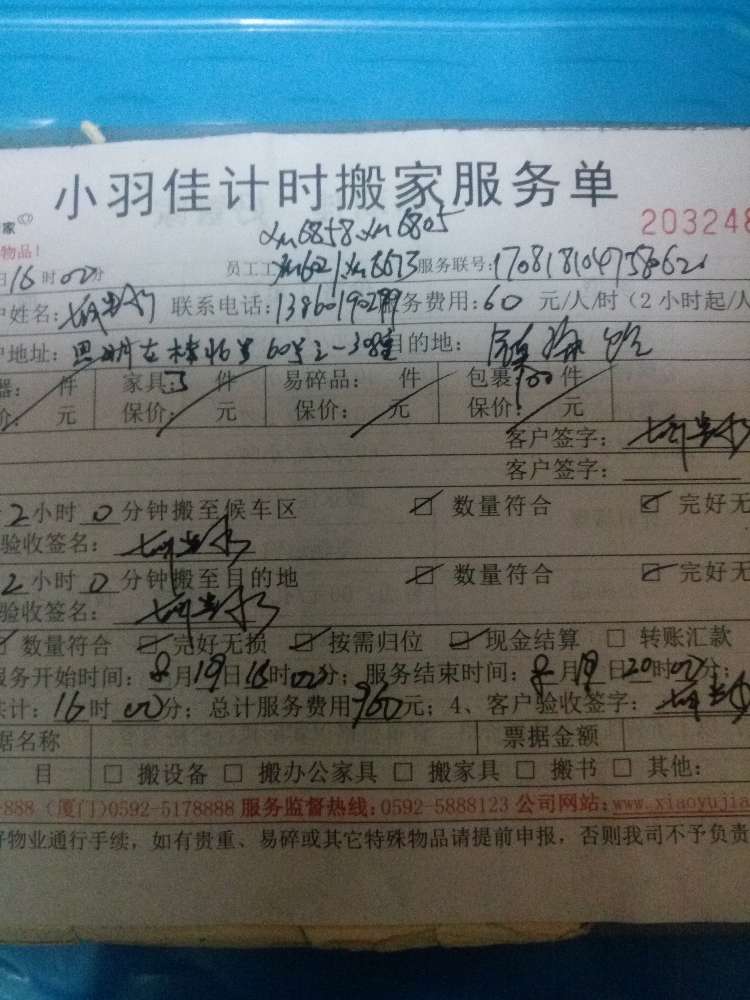 小羽佳计时搬家服务单
家
物品!
xm6858.xm6805
203248
日16时00分 员工工 xm6621.xm6673 服务联号:1708181047580620
户姓名: 联系电话:13860190299 服务费用:60元/人/时(2小时起/人
户地址:思明 60号 目的地:
器: 件 家具:3件 易碎品: 件 包裹:100件
价: 元 保价: 元 保价: 元 保价: 元
客户签字:
客户签字:
2小时0分钟搬至候车区 ☑ 数量符合 ☑ 完好无
验收签名:
2小时0分钟搬至目的地 ☑ 数量符合 ☑ 完好无
验收签名:
☑ 数量符合 ☑ 完好无损 ☑ 按需归位 ☑ 现金结算 □ 转账汇款
服务开始时间:8月19日16时00分;服务结束时间:8月19日20时00分;
共计:16时00分;总计服务费用960元;4、客户验收签字:
据名称 票据金额
目 □ 搬设备 □ 搬办公家具 □ 搬家具 □ 搬书 □ 其他:
-888 (厦门)0592-5178888 服务监督热线:0592-5888123 公司网站:www.xiaoyujia
好物业通行手续,如有贵重、易碎或其它特殊物品请提前申报,否则我司不予负责